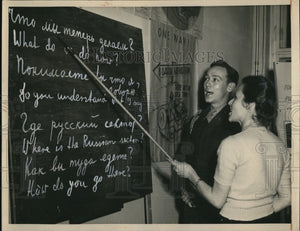 Что мы теперь делаем?
What do we do now?
Понимаете вы что я говорю?
Do you understand what I say
Где русский сектор?
Where is the Russian sector?
Как вы туда едете?
How do you go there?
ONE WAY